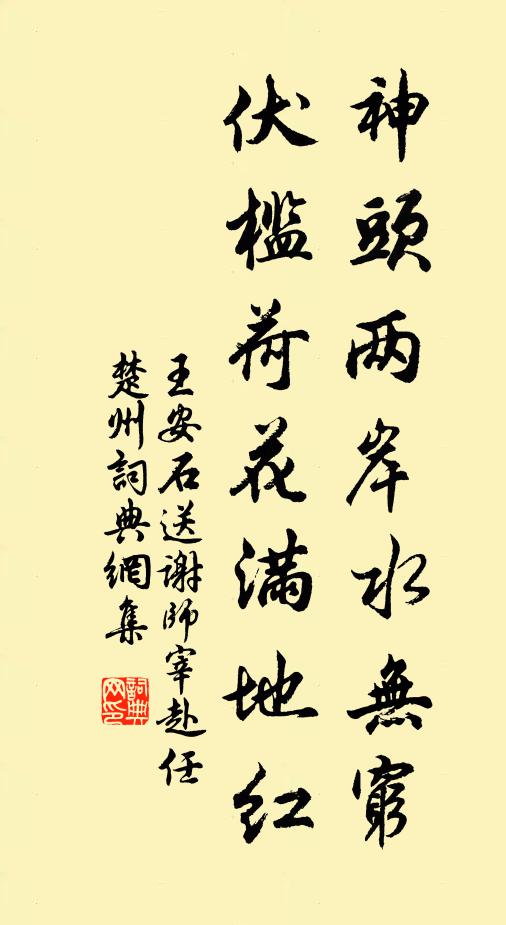 神頭两岸水無窮
伏檻荷花滿地紅
王安石送謝師宰赴任
楚州詞典網集
詞典
网印